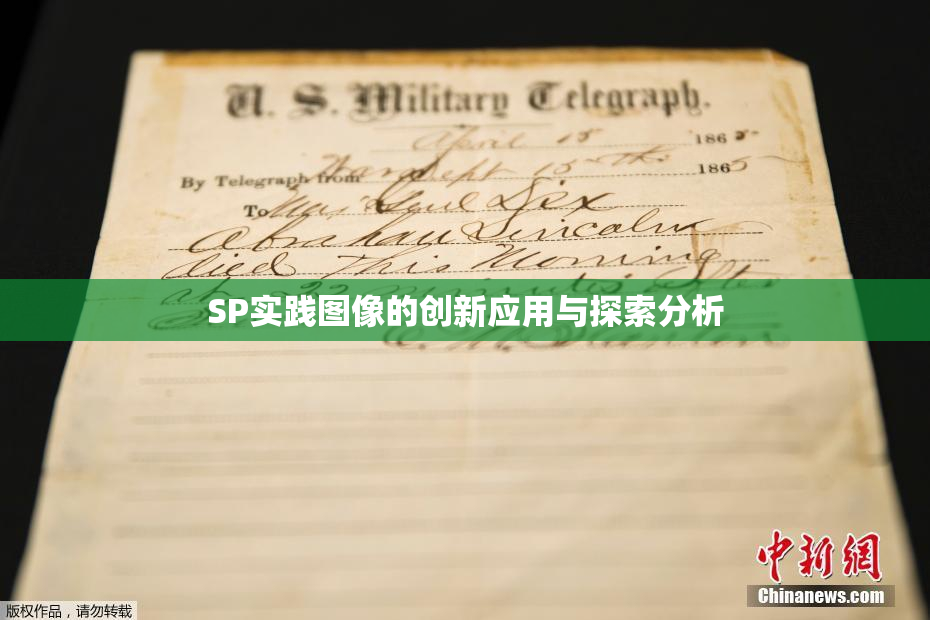 U. S. Military Telegraph.
April 15 1865
By Telegraph from War Dept 15th 1865
To Maj Genl Dix
Abraham Lincoln
died This Morning
at 22 minutes after
SP实践图像的创新应用与探索分析
E. M. Stanton
中新网
Chinanews.com
版权作品，请勿转载